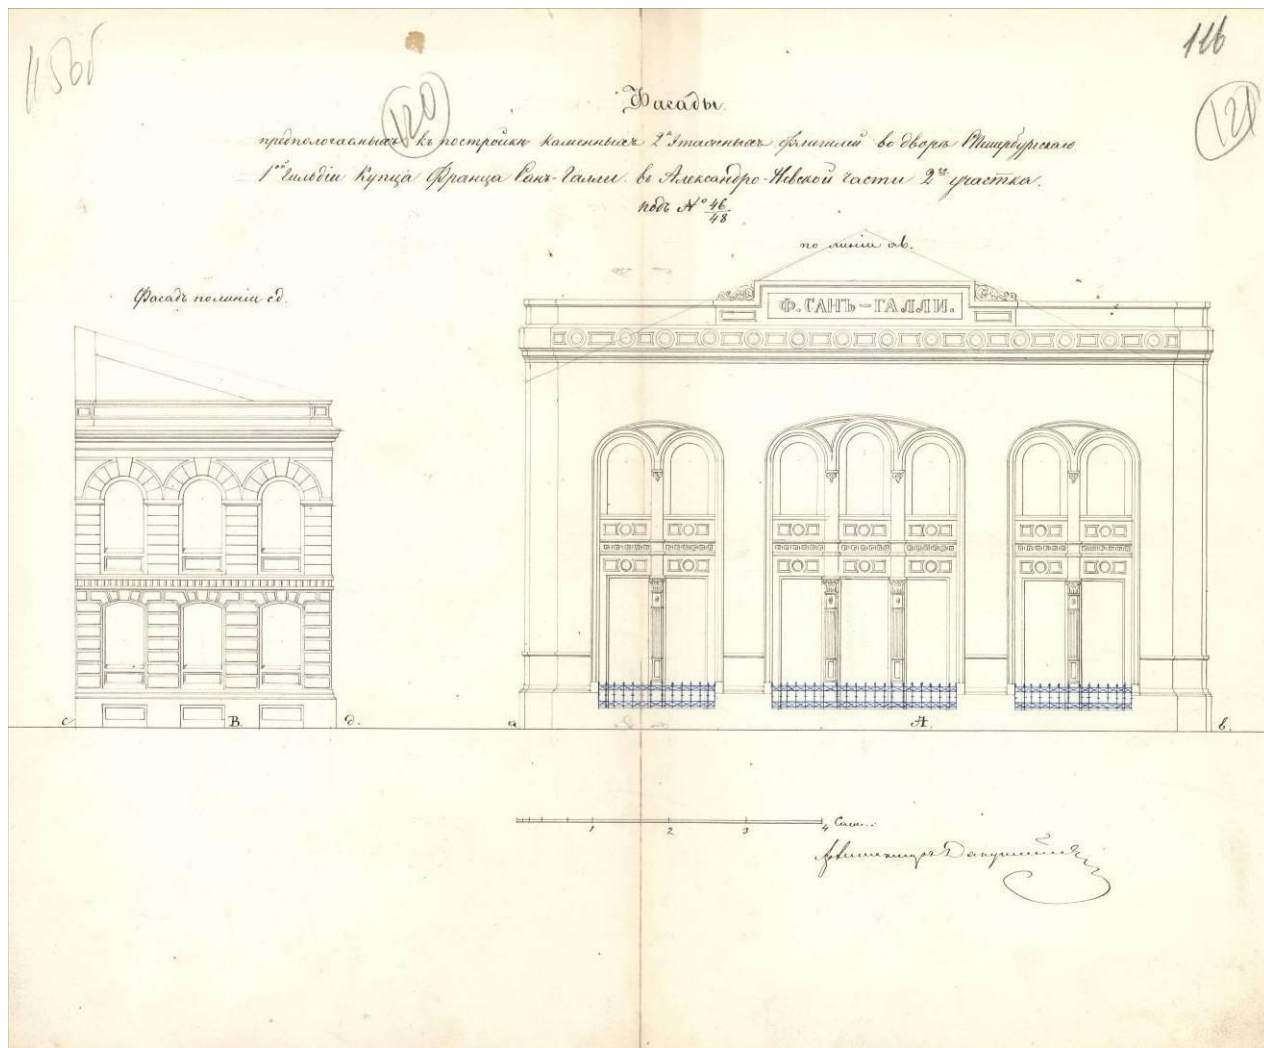 11506
116
120
121
Фасады.
предпологаемыхъ къ постройкѣ каменныхъ 2хъ Этажныхъ флигелей во дворѣ СПетербургскаго
1ой Гильдіи Купца Франца Санъ-Галли. въ Александро-Невской части 2го участка.
подъ № 46/48
по линіи ав.
Фасадъ по линіи сд.
Ф. САНЪ-ГАЛЛИ.
с В. д. а А. в.
1 2 3 4 Саж.
Архитекторъ